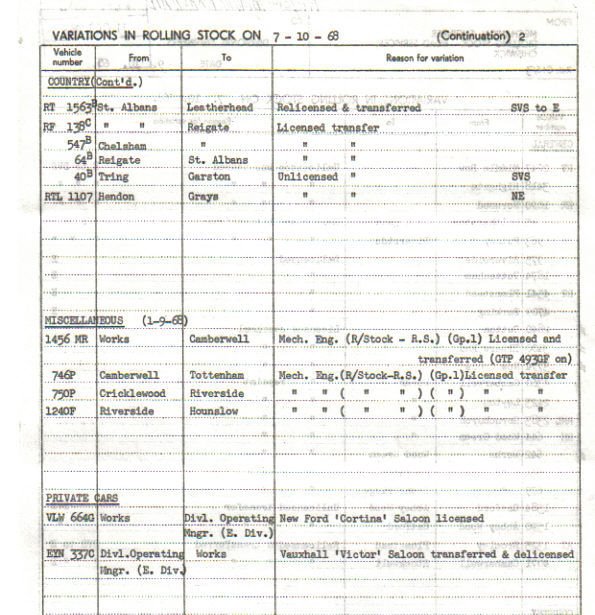 VARIATIONS IN ROLLING STOCK ON 7 - 10 - 68 (Continuation) 2
Vehicle number From To Reason for variation
COUNTRY(Cont'd.)
RT 1563B St. Albans Leatherhead Relicensed & transferred SVS to E
RF 138C " " Reigate Licensed transfer
547B Chelsham " " "
64B Reigate St. Albans " "
40B Tring Garston Unlicensed " SVS
RTL 1107 Hendon Grays " " NE
MISCELLANEOUS (1-9-68)
1456 MR Works Camberwell Mech. Eng. (R/Stock - R.S.) (Gp.1) Licensed and
transferred (GTP 493GF on)
746P Camberwell Tottenham Mech. Eng.(R/Stock-R.S.) (Gp.1)Licensed transfer
750P Cricklewood Riverside " " ( " " ) ( " ) " "
1240F Riverside Hounslow " " ( " " ) ( " ) " "
PRIVATE CARS
VLW 664G Works Divl. Operating New Ford 'Cortina' Saloon licensed
Mngr. (E. Div.)
EYN 337C Divl.Operating Works Vauxhall 'Victor' Saloon transferred & delicensed
Mngr. (E. Div.)